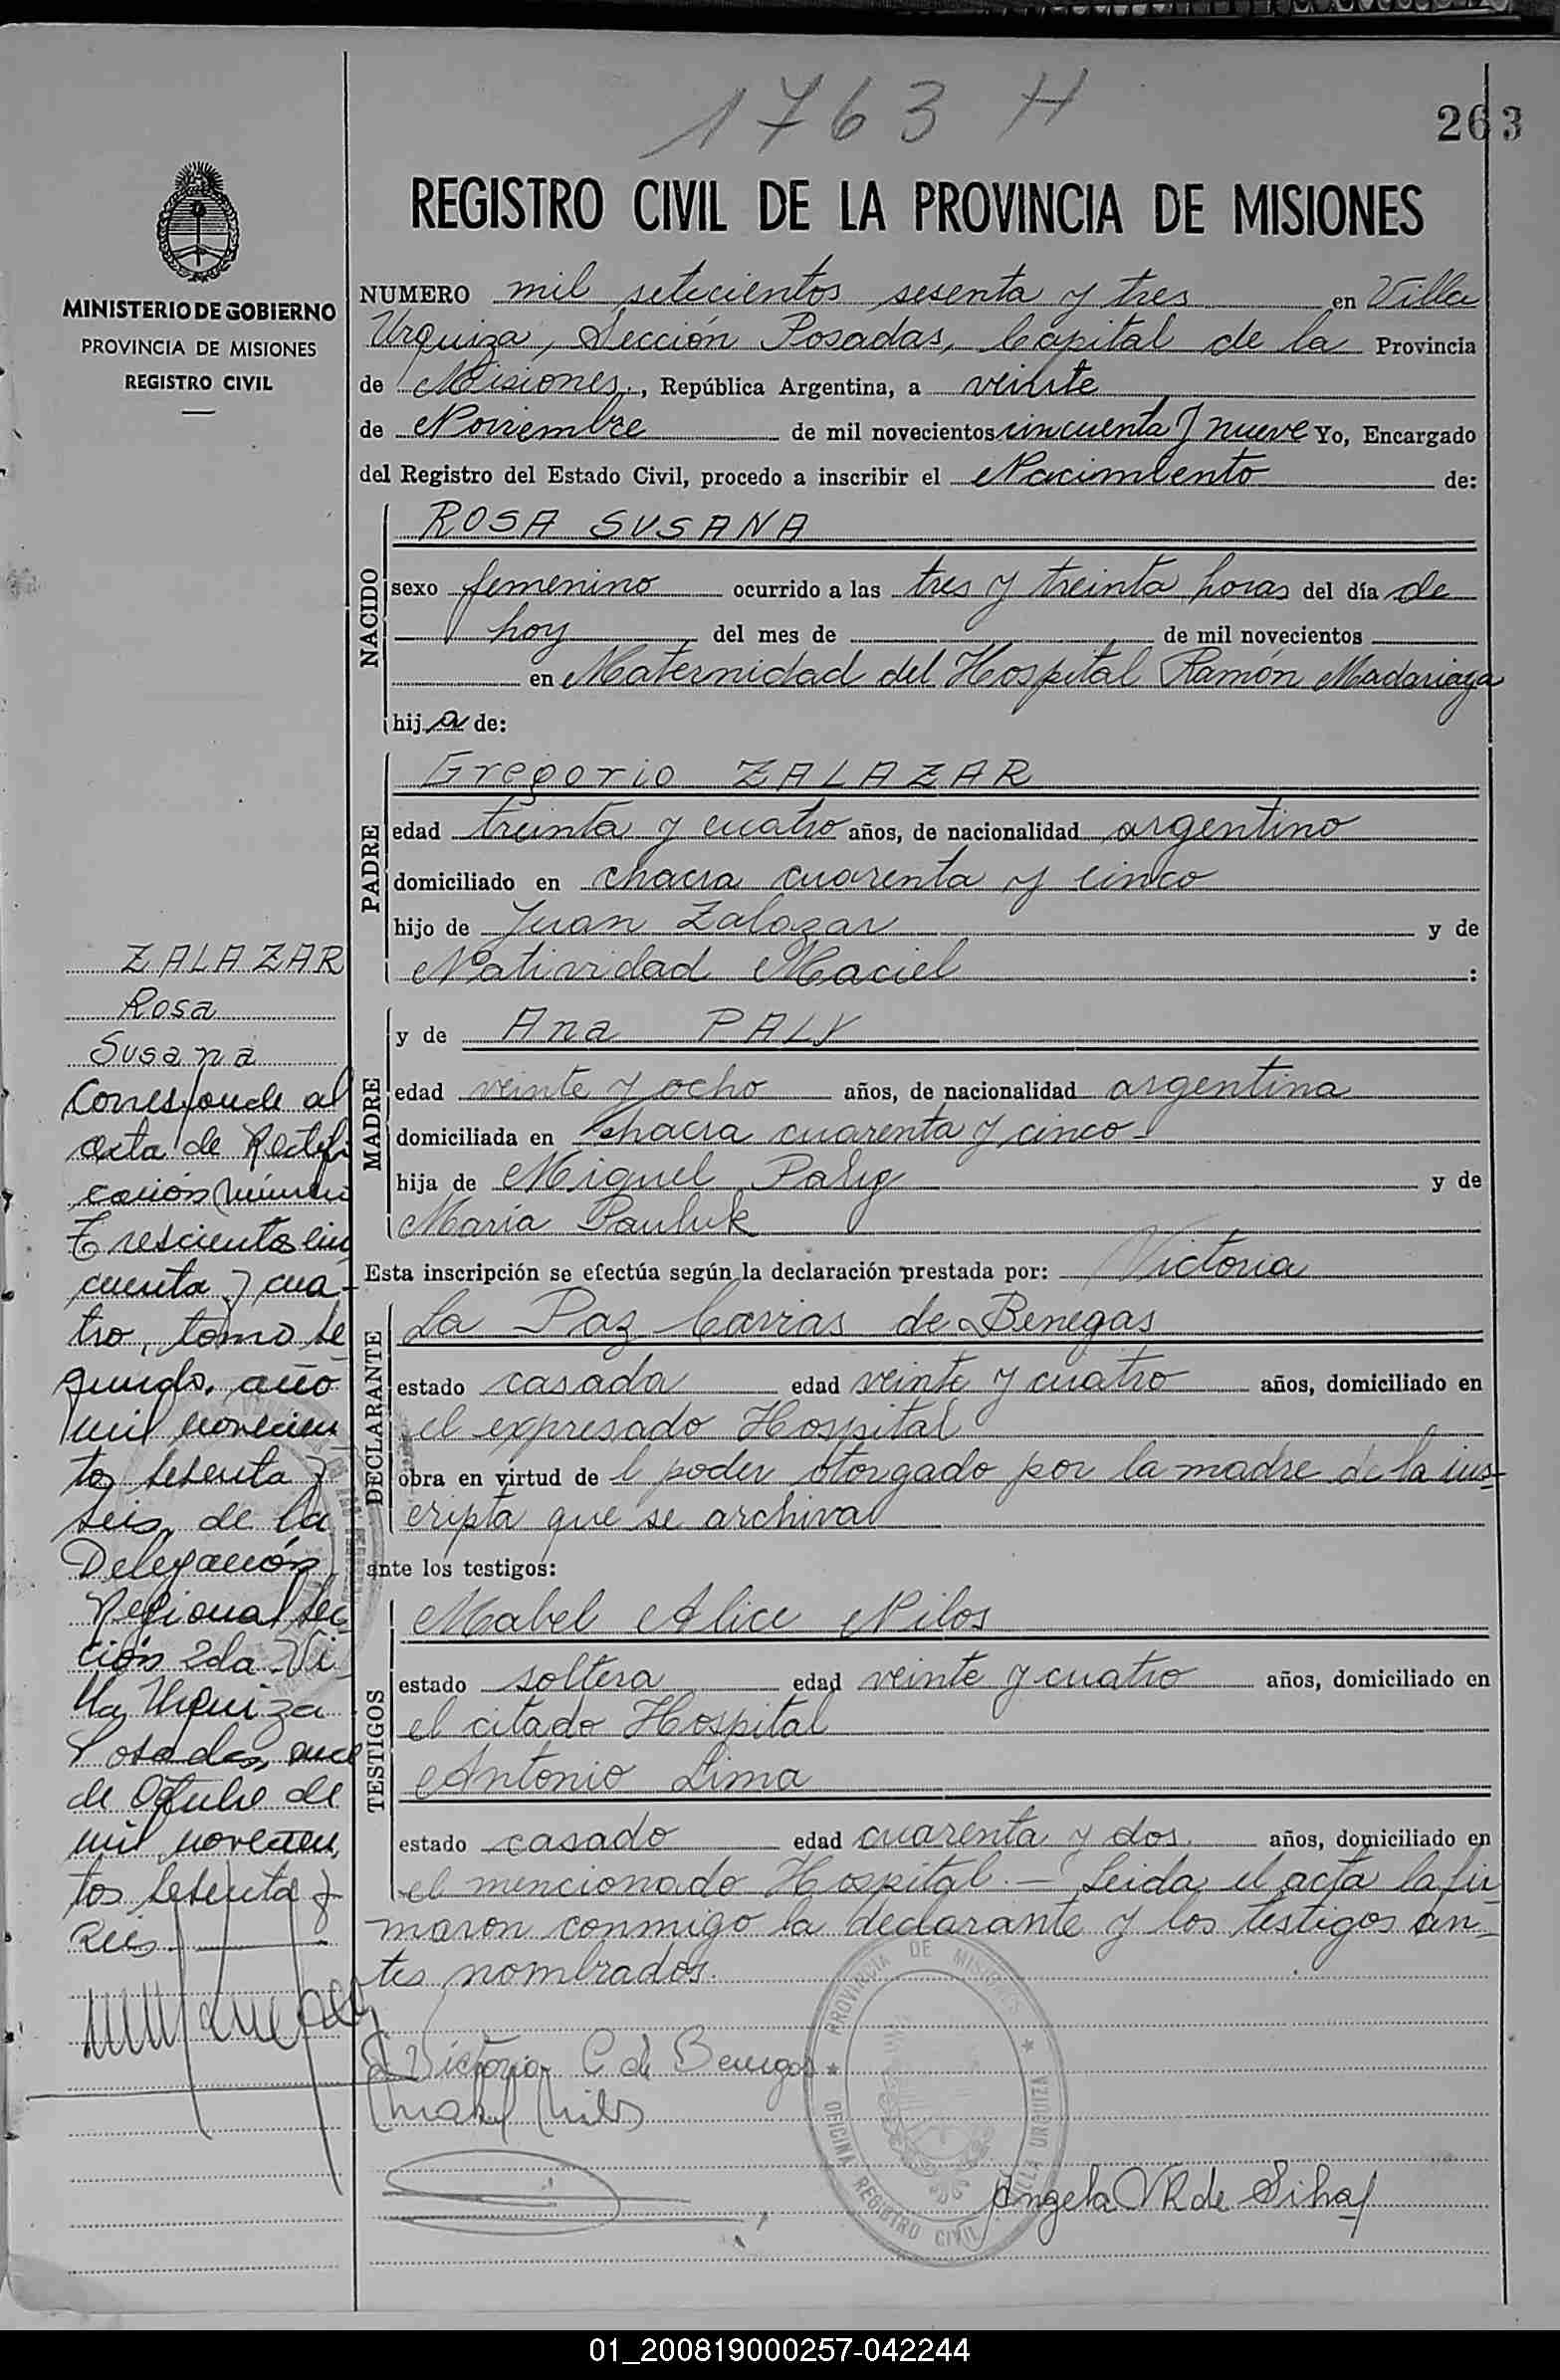 1763 H
263
MINISTERIO DE GOBIERNO
PROVINCIA DE MISIONES
REGISTRO CIVIL
REGISTRO CIVIL DE LA PROVINCIA DE MISIONES
NUMERO mil setecientos sesenta y tres en Villa
Urquiza, Sección Posadas, Capital de la Provincia
de Misiones, República Argentina, a veinte
de Noviembre de mil novecientos cincuenta y nueve Yo, Encargado
del Registro del Estado Civil, procedo a inscribir el Nacimiento de:
NACIDO
ROSA SUSANA
sexo femenino ocurrido a las tres y treinta horas del día de
hoy del mes de de mil novecientos
en Maternidad del Hospital Ramón Madariaga
hija de:
PADRE
Gregorio ZALAZAR
edad treinta y cuatro años, de nacionalidad argentino
domiciliado en chacra cuarenta y cinco
hijo de Juan Zalazar y de
Natividad Maciel :
MADRE
y de Ana PALY
edad veinte y ocho años, de nacionalidad argentina
domiciliada en Chacra cuarenta y cinco-
hija de Miguel Paliy y de
María Pauluk
Esta inscripción se efectúa según la declaración prestada por: Victoria
DECLARANTE
La Paz Carrias de Benegas
estado casada edad veinte y cuatro años, domiciliado en
el expresado Hospital
obra en virtud de l poder otorgado por la madre de la ins-
cripta que se archiva
ante los testigos:
TESTIGOS
Mabel Alice Nilos
estado soltera edad veinte y cuatro años, domiciliado en
el citado Hospital
Antonio Lima
estado casado edad cuarenta y dos. años, domiciliado en
el mencionado Hospital.- Leida el acta la fir-
maron conmigo la declarante y los testigos an-
tes nombrados.
Victoria C de Benegas
Mabel Nilos
Angela V R de Silva
PROVINCIA DE MISIONES
OFICINA REGISTRO CIVIL VILLA URQUIZA
ZALAZAR
Rosa
Susana
Corresponde al
acta de Rectifi
cación número
Trescientos cin
cuenta y cua-
tro, tomo se
gundo, año
mil novecien
tos setenta y
seis, de la
Delegación
Regional Sec
ción 2da. Vi
lla Urquiza
Posadas, once
de Octubre de
mil novecien,
tos setenta y
seis
01_200819000257-042244